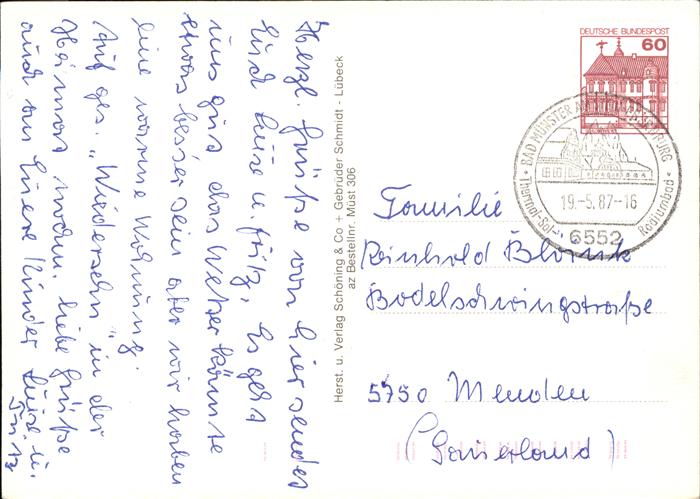 Herzl. Grüße von hier sendet
Euch Luise u. Fritz. Es geht
uns gut das Wetter könnte
etwas besser sein aber wir haben
eine warme Wohnung.
Auf ges. „Wiedersehn" in der
Heimat liebe Grüße
auch an Euere Kinder Luise u.
Fritz
Herst. u. Verlag Schöning & Co + Gebrüder Schmidt - Lübeck
az Bestellnr. Müst 306
DEUTSCHE BUNDESPOST
60
BAD MÜNSTER AM STEIN-EBERNBURG
19.-5.87-16
Thermal-Sol- Radiumbad
6552
Familie
Reinhold
Bodelschwingstraße
5750 Menden
(Sauerland)